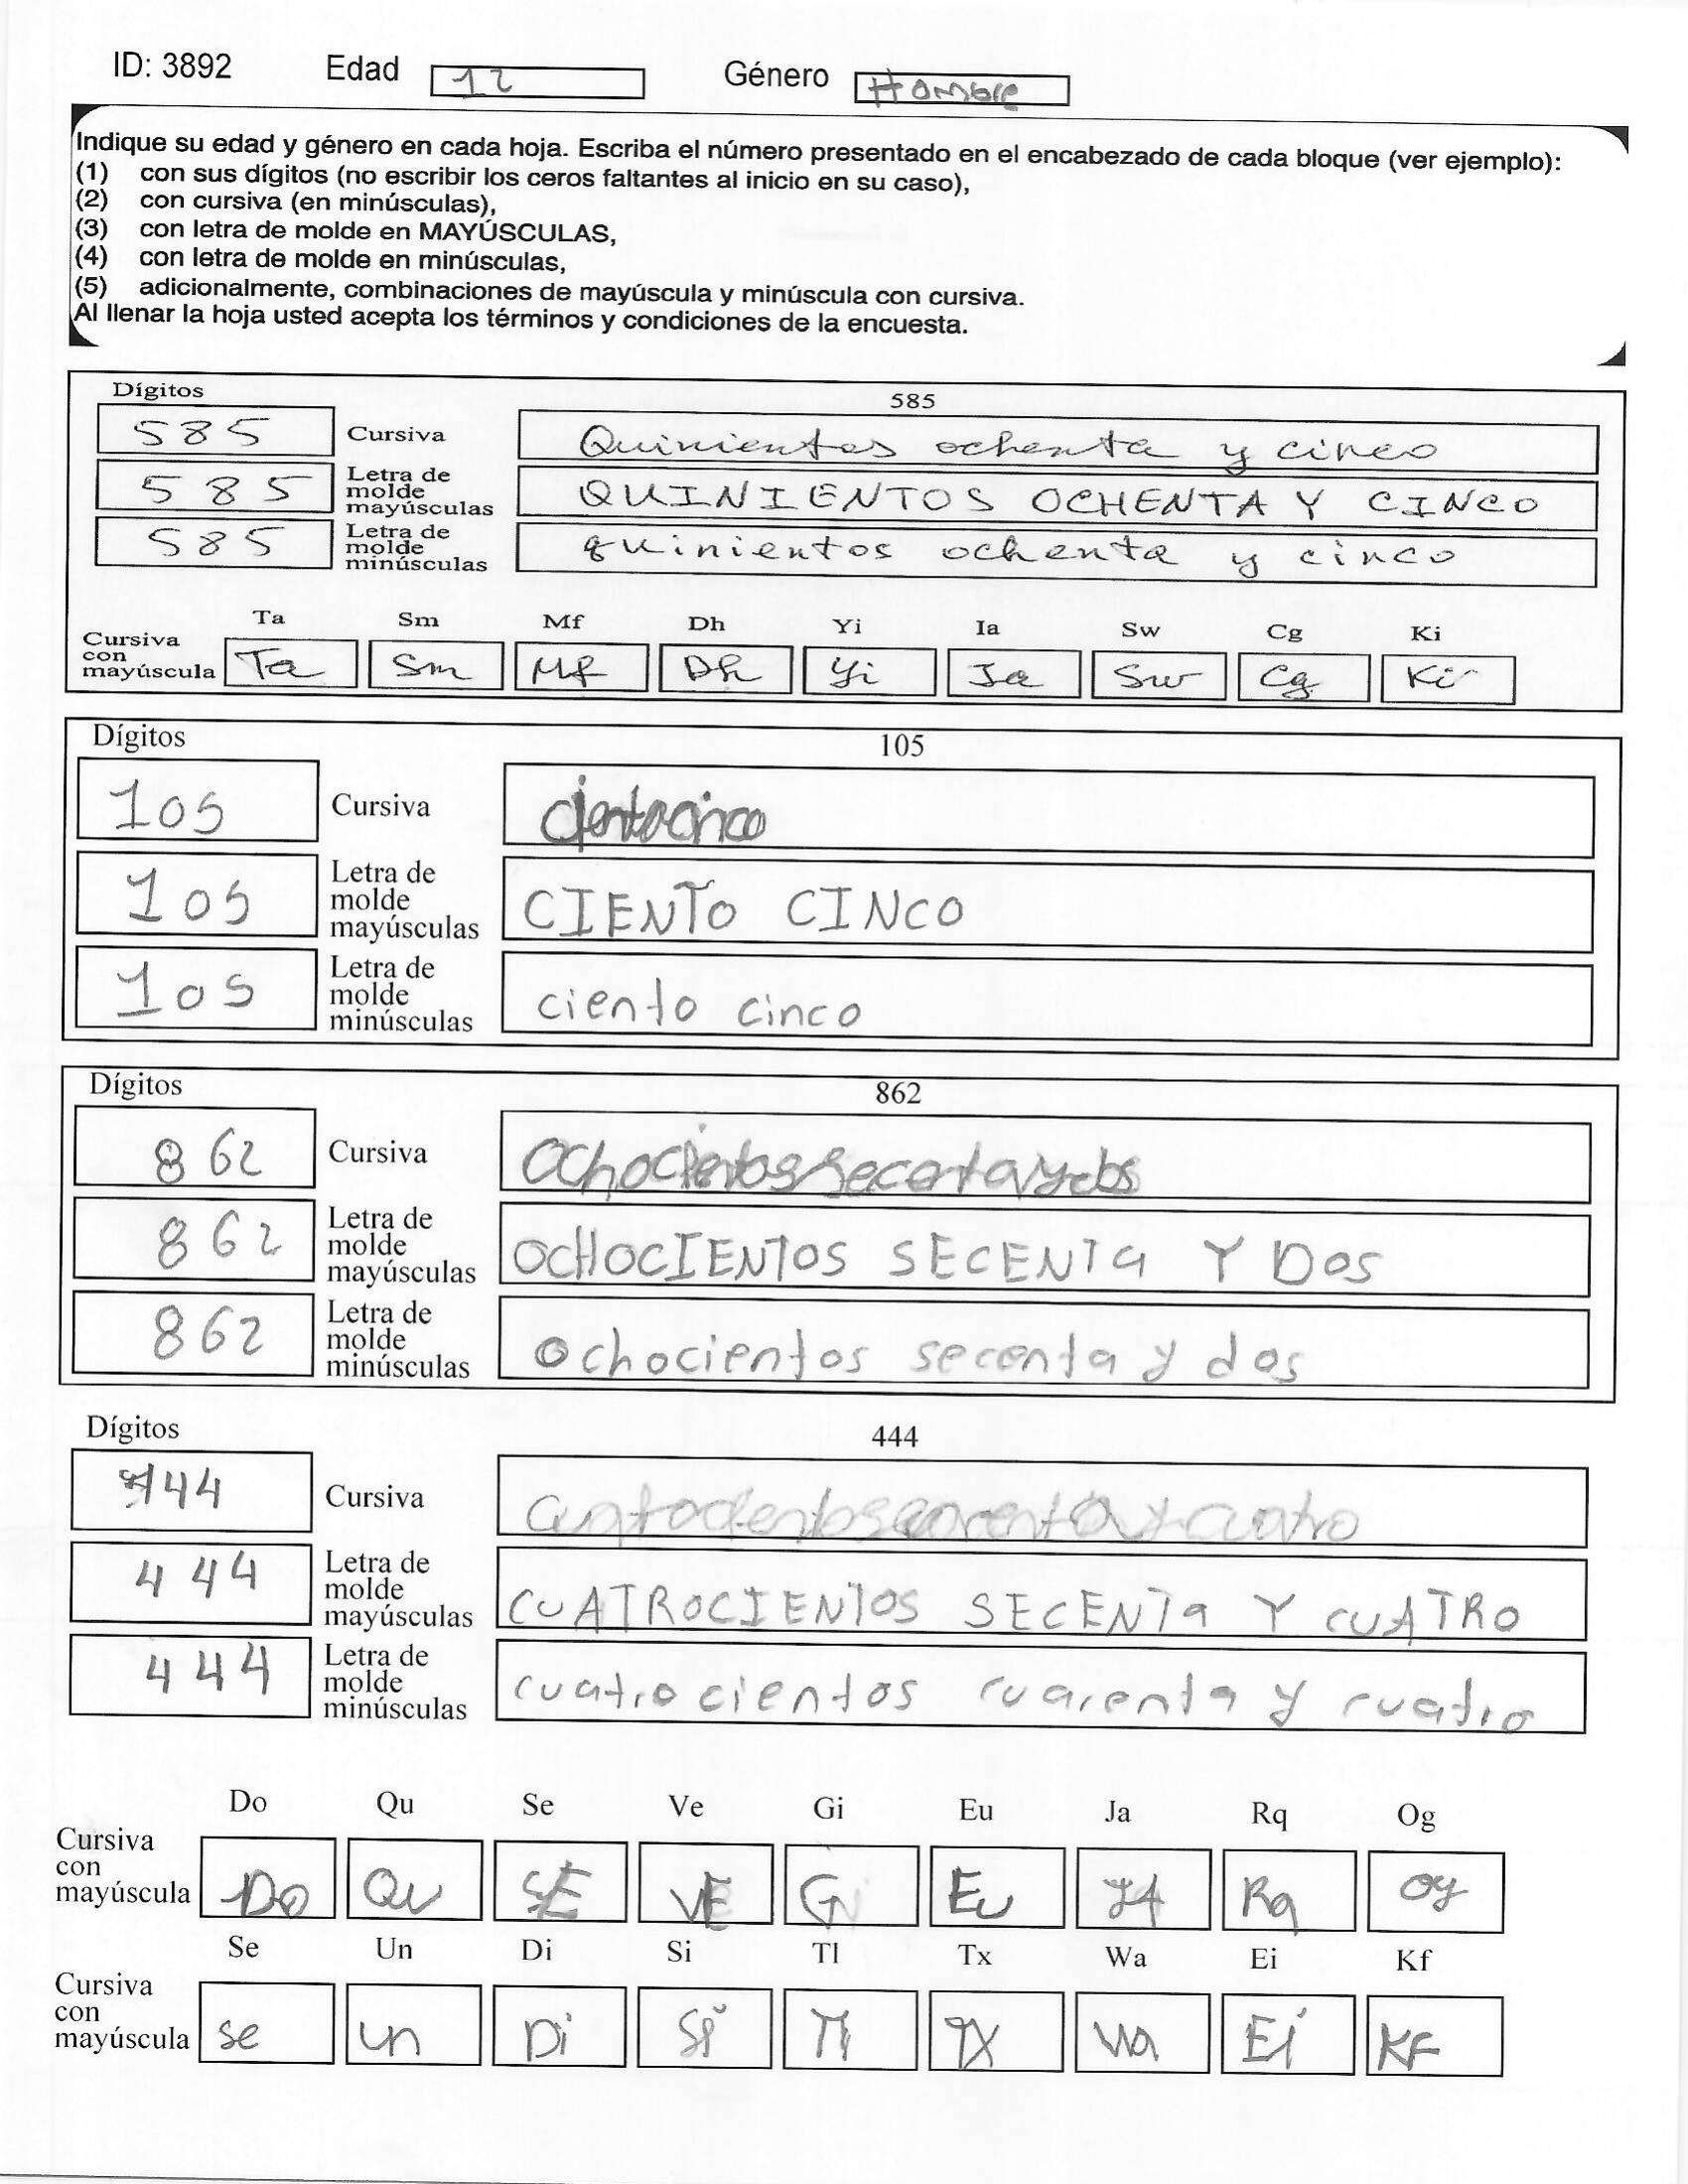 ID: 3892 Edad 12 Género Hombre
Indique su edad y género en cada hoja. Escriba el número presentado en el encabezado de cada bloque (ver ejemplo):
(1) con sus dígitos (no escribir los ceros faltantes al inicio en su caso),
(2) con cursiva (en minúsculas),
(3) con letra de molde en MAYÚSCULAS,
(4) con letra de molde en minúsculas,
(5) adicionalmente, combinaciones de mayúscula y minúscula con cursiva.
Al llenar la hoja usted acepta los términos y condiciones de la encuesta.
Dígitos 585
585 Cursiva Quinientos ochenta y cinco
585 Letra de molde mayúsculas QUINIENTOS OCHENTA Y CINCO
585 Letra de molde minúsculas quinientos ochenta y cinco
Ta Sm Mf Dh Yi Ia Sw Cg Ki
Cursiva con mayúscula Ta Sm Mf Dh Yi Ia Sw Cg Ki
Dígitos 105
105 Cursiva cientocinco
105 Letra de molde mayúsculas CIENTO CINCO
105 Letra de molde minúsculas ciento cinco
Dígitos 862
862 Cursiva Ochocientossecentaydos
862 Letra de molde mayúsculas OCHOCIENTOS SECENTa Y DOS
862 Letra de molde minúsculas ochocientos secenta y dos
Dígitos 444
444 Cursiva
444 Letra de molde mayúsculas CUATROCIENTOS SECENTa Y CUATRO
444 Letra de molde minúsculas cuatrocientos cuarenta y cuatro
Do Qu Se Ve Gi Eu Ja Rq Og
Cursiva con mayúscula Do Qu SE VE Gi Eu JA Rq Og
Se Un Di Si Tl Tx Wa Ei Kf
Cursiva con mayúscula se un Di Si Tl TX Wa Ei KF